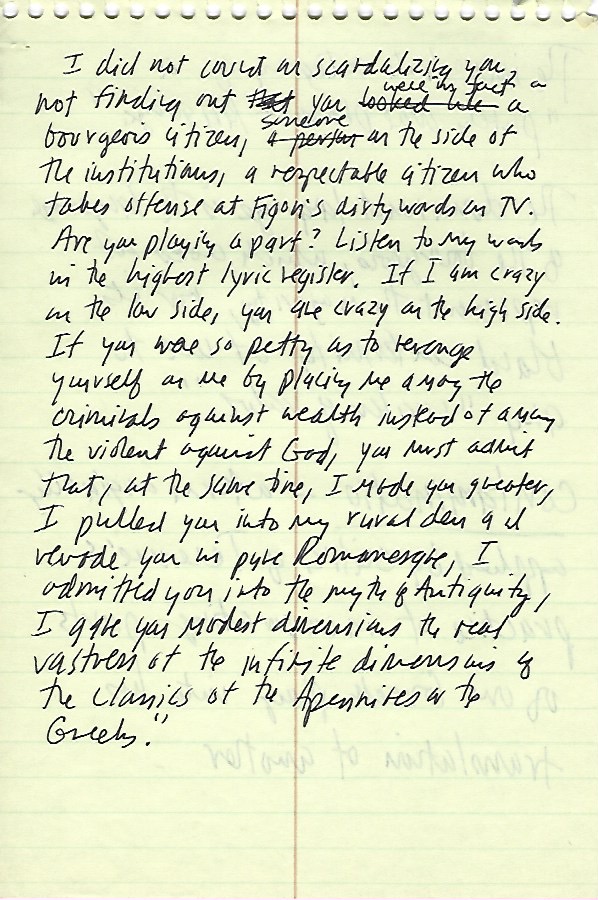 I did not count on scandalizing you,
were in fact a
not finding out that you looked like a
someone
bourgeois citizen, a person on the side of
the institutions, a respectable citizen who
takes offense at Figon's dirty words on TV.
Are you playing a part? Listen to my words
in the highest lyric register. If I am crazy
on the low side, you are crazy on the high side.
If you were so petty as to revenge
yourself on me by placing me among the
criminals against wealth instead of among
the violent against God, you must admit
that, at the same time, I made you greater,
I pulled you into my rural den and
you in pure Romanesque, I
admitted you into the myth of Antiquity,
I gave your modest dimensions the real
vastness of the infinite dimensions of
the Classics of the Apennines or the
Greeks."